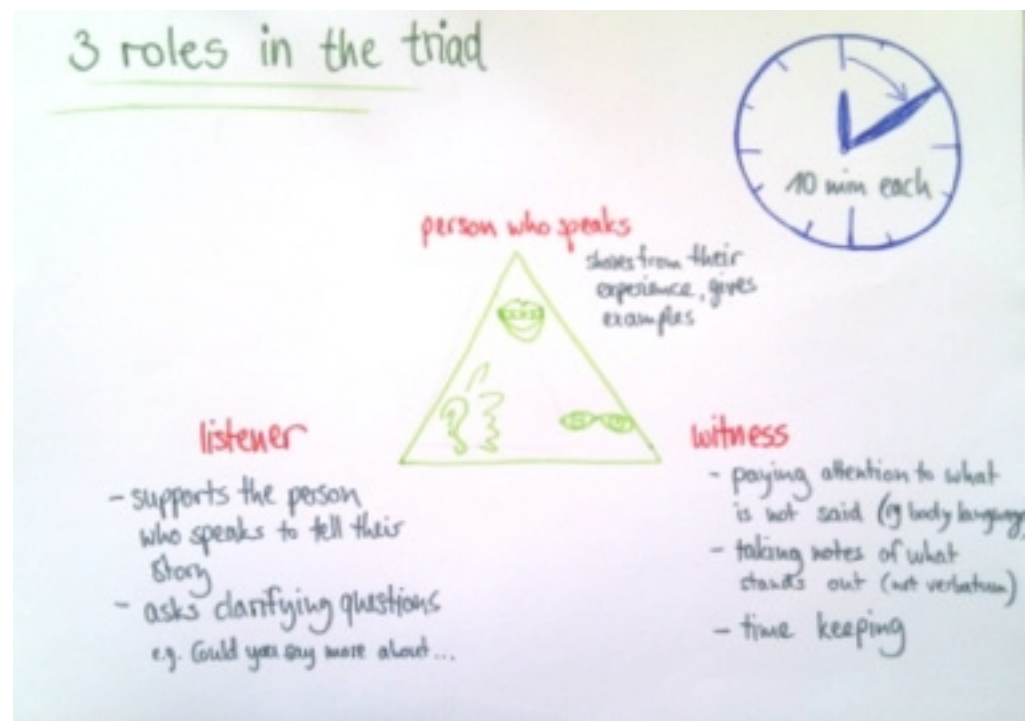 3 roles in the triad
10 min each
person who speaks
shares from their
experience, gives
examples
listener
- supports the person
who speaks to tell their
story
- asks clarifying questions
e.g. Could you say more about...
witness
- paying attention to what
is not said (eg body language)
- taking notes of what
stands out (not verbatum)
- time keeping